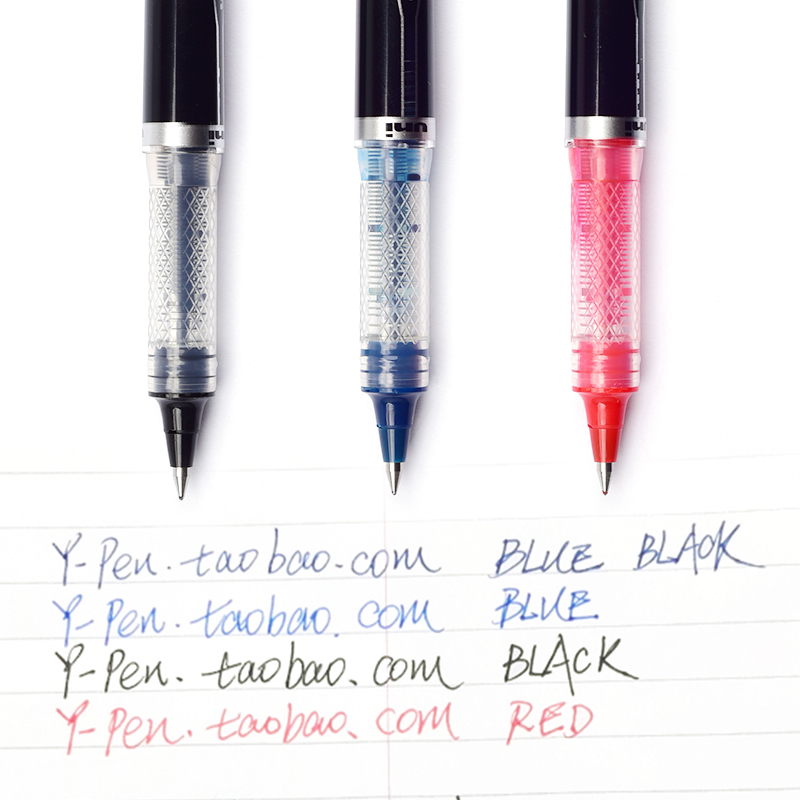 uni
uni
uni
Y-Pen.taobao.com BLUE BLACK
Y-Pen.taobao.com BLUE
Y-Pen.taobao.com BLACK
Y-Pen.taobao.com RED